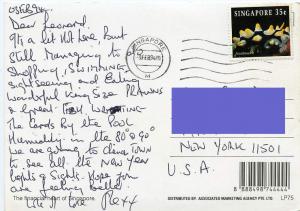 Dear Leonard.
It's a bit Hot here But
Still Managing to
Shopping, SWIMMING
Sightseeing and Eating
Wonderful King Size PRAWNS
& Great
The Cards by the POOL
Humidity in the 80's & 90'
We are going to
to see all the NEW YEAR
lights & Sights. Hope you
are feeling better.
SINGAPORE
SINGAPORE 35c
NEW YORK 11501
U.S.A.
The financial heart of Singapore.
DISTRIBUTED BY: ASSOCIATED MARKETING AGENCY PTE. LTD
LP75